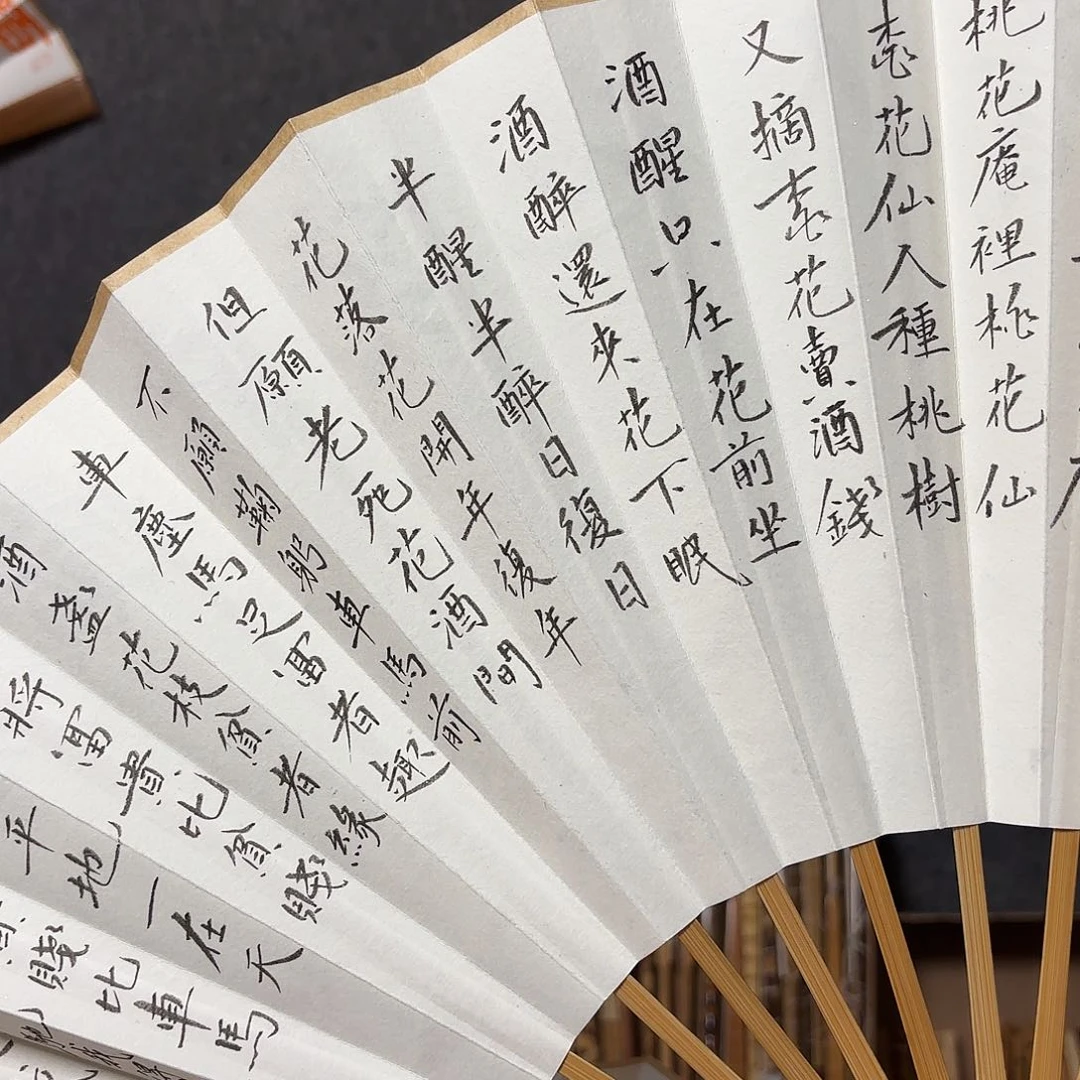 桃花庵裡桃花仙
桃花仙人種桃樹
又摘桃花賣酒錢
酒醒只在花前坐
酒醉還來花下眠
半醒半醉日復日
花落花開年復年
但願老死花酒間
不願鞠躬車馬前
車塵馬足富者趣
酒盞花枝貧者緣
將富貴比貧賤
平地一在天
賤比車馬